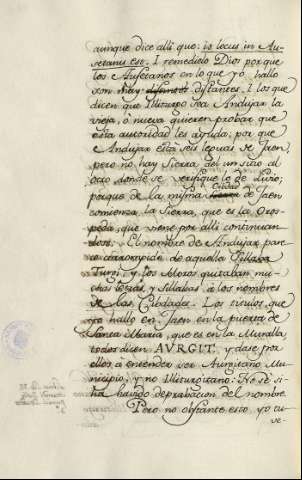 aunque dice alli que: is locus in Au-
setanis est. I remedielo Dios por que
los Ausetanos en lo que yò hallo
son muy distantes. I los que
dicen que Illiturgo sea Andujar la
vieja, ò nueva quieren probar que
esta autoridad les ayuda; por que
Andujar està seis leguas de Jaen,
pero no hay Sierra del un sitio al
otro donde se verifique lo de Livio;
porque de la misma Ciudad de Jaen
comienza la Sierra, que es la Oros-
peda, que viene por alli continuan
dose. El nombre de Andujar pare
ce corrompido de aquella Sillaba
Turgi, y los Moros quitaban mu-
chas letras, y Sillabas à los nombres
de las Ciudades. Los titulos, que
yo hallo en Jaen en la puerta de
Santa Maria, que es en la Muralla,
todos dicen AVRGIT. y dase por
ellos à entender ser Aurgitano Mu-
nicipio; y no Illiturgitano: No se si
ha havido depravacion del nombre
Pero no obstante esto, yo tu
ve-